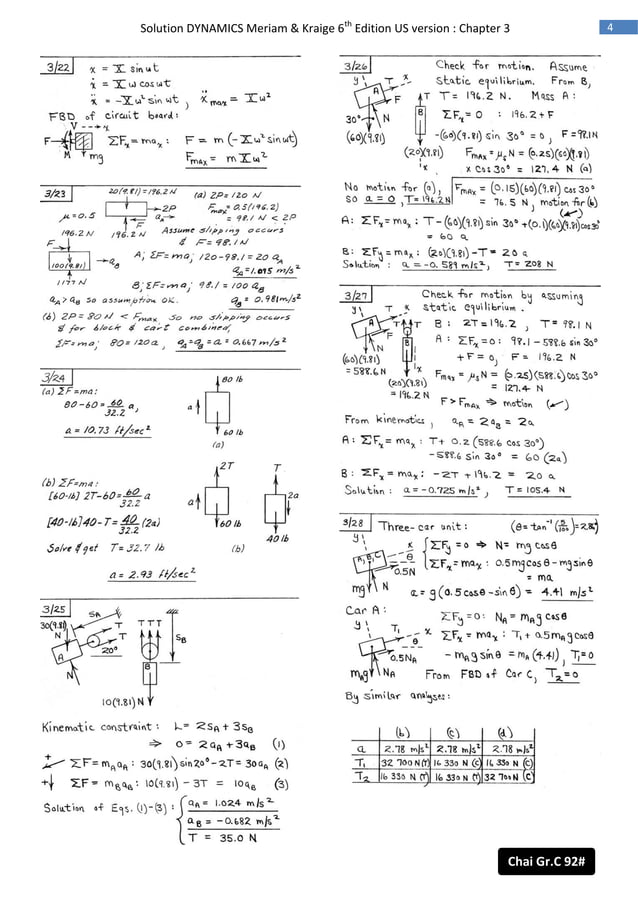 Solution DYNAMICS Meriam & Kraige 6th Edition US version : Chapter 3
4
3/22
x = X sin ωt
ẋ = X ω cos ωt
ẍ = -X ω² sin ωt , ẍmax = X ω²
FBD of circuit board:
V ---→ x
F
M mg
ΣFx = max : F = m (-X ω² sin ωt)
Fmax = m X ω²
3/23
20(9.81)=196.2 N
(a) 2P = 120 N
Fmax = 0.5(196.2)
= 98.1 N < 2P
μ = 0.5
2P
F
aA
196.2 N
196.2 N
Assume slipping occurs
& F = 98.1 N
F
100(9.81)
aB
1177 N
A; ΣF=ma; 120-98.1 = 20 aA
aA = 1.095 m/s²
B; ΣF=ma; 98.1 = 100 aB
aA > aB so assumption OK.
aB = 0.981 m/s²
(b) 2P = 80 N < Fmax so no slipping occurs
& for block & cart combined,
ΣF=ma; 80 = 120a , aA=aB=a = 0.667 m/s²
3/24
(a) ΣF=ma:
80-60 = 60/32.2 a,
a = 10.73 ft/sec²
80 lb
a
60 lb
(a)
(b) ΣF=ma:
[60-lb] 2T-60 = 60/32.2 a
[40-lb] 40-T = 40/32.2 (2a)
Solve & get T = 32.7 lb
a = 2.93 ft/sec²
2T
T
a
2a
60 lb
40 lb
(b)
3/25
SA
30(9.81)
N
T
T
A
20°
N
T T T
SB
B
10(9.81) N
Kinematic constraint : L = 2SA + 3SB
⇒ 0 = 2aA + 3aB (1)
+ ΣF = mAaA : 30(9.81) sin 20° - 2T = 30aA (2)
+↓ ΣF = mBaB : 10(9.81) - 3T = 10aB (3)
Solution of Eqs. (1)-(3) :
aA = 1.024 m/s²
aB = -0.682 m/s²
T = 35.0 N
3/26
Check for motion. Assume
static equilibrium. From B,
T = 196.2 N. Mass A :
y
T
x
A
F
30°
N
(60)(9.81)
T
B
(20)(9.81)
x
ΣFx = 0 : 196.2 + F
-(60)(9.81) sin 30° = 0 , F = 98.1 N
Fmax = μsN = (0.25)(60)(9.81)
x cos 30° = 127.4 N (a)
No motion for (a),
so a = 0 , T = 196.2 N
Fmax = (0.15)(60)(9.81) cos 30°
= 76.5 N, motion for (b)
(↙)
A: ΣFx = max : T - (60)(9.81) sin 30° + (0.1)(60)(9.81) cos 30°
= 60 a
B: ΣFy = max : (20)(9.81) - T = 20 a
Solution : a = -0.589 m/s², T = 208 N
3/27
Check for motion by assuming
static equilibrium.
y
T
x
A
F
N
(60)(9.81)
= 588.6 N
T T
B
x
(20)(9.81)
= 196.2 N
B : 2T = 196.2 , T = 98.1 N
A : ΣFx = 0 : 98.1 - 588.6 sin 30°
+ F = 0, F = 196.2 N
Fmax = μsN = (0.25)(588.6) cos 30°
= 127.4 N
F > Fmax ⇒ motion (↙)
From kinematics , aA = 2aB = 2a
A : ΣFx = max : T + 0.2 (588.6 cos 30°)
-588.6 sin 30° = 60 (2a)
B : ΣFx = max : -2T + 196.2 = 20 a
Solution : a = -0.725 m/s² , T = 105.4 N
3/28
Three-car unit : (θ = tan⁻¹ (5/100) = 2.86°)
y
x
A,B,C
θ
0.5N
mg
N
ΣFy = 0 ⇒ N = mg cosθ
ΣFx = max : 0.5mg cosθ - mg sinθ
= ma
a = g(0.5 cosθ - sinθ) = 4.41 m/s²
Car A :
y
T1
x
A
θ
0.5NA
mAg
NA
ΣFy = 0 : NA = mAg cosθ
ΣFx = max : T1 + 0.5mAg cosθ
- mAg sinθ = mA (4.41) , T1 = 0
From FBD of Car C, T2 = 0
By similar analyses :
(b) (c) (d)
a 2.78 m/s² 2.78 m/s² 2.78 m/s²
T1 32 700 N (T) 16 330 N (C) 16 330 N (C)
T2 16 330 N (T) 16 330 N (T) 32 700 N (C)
Chai Gr.C 92#